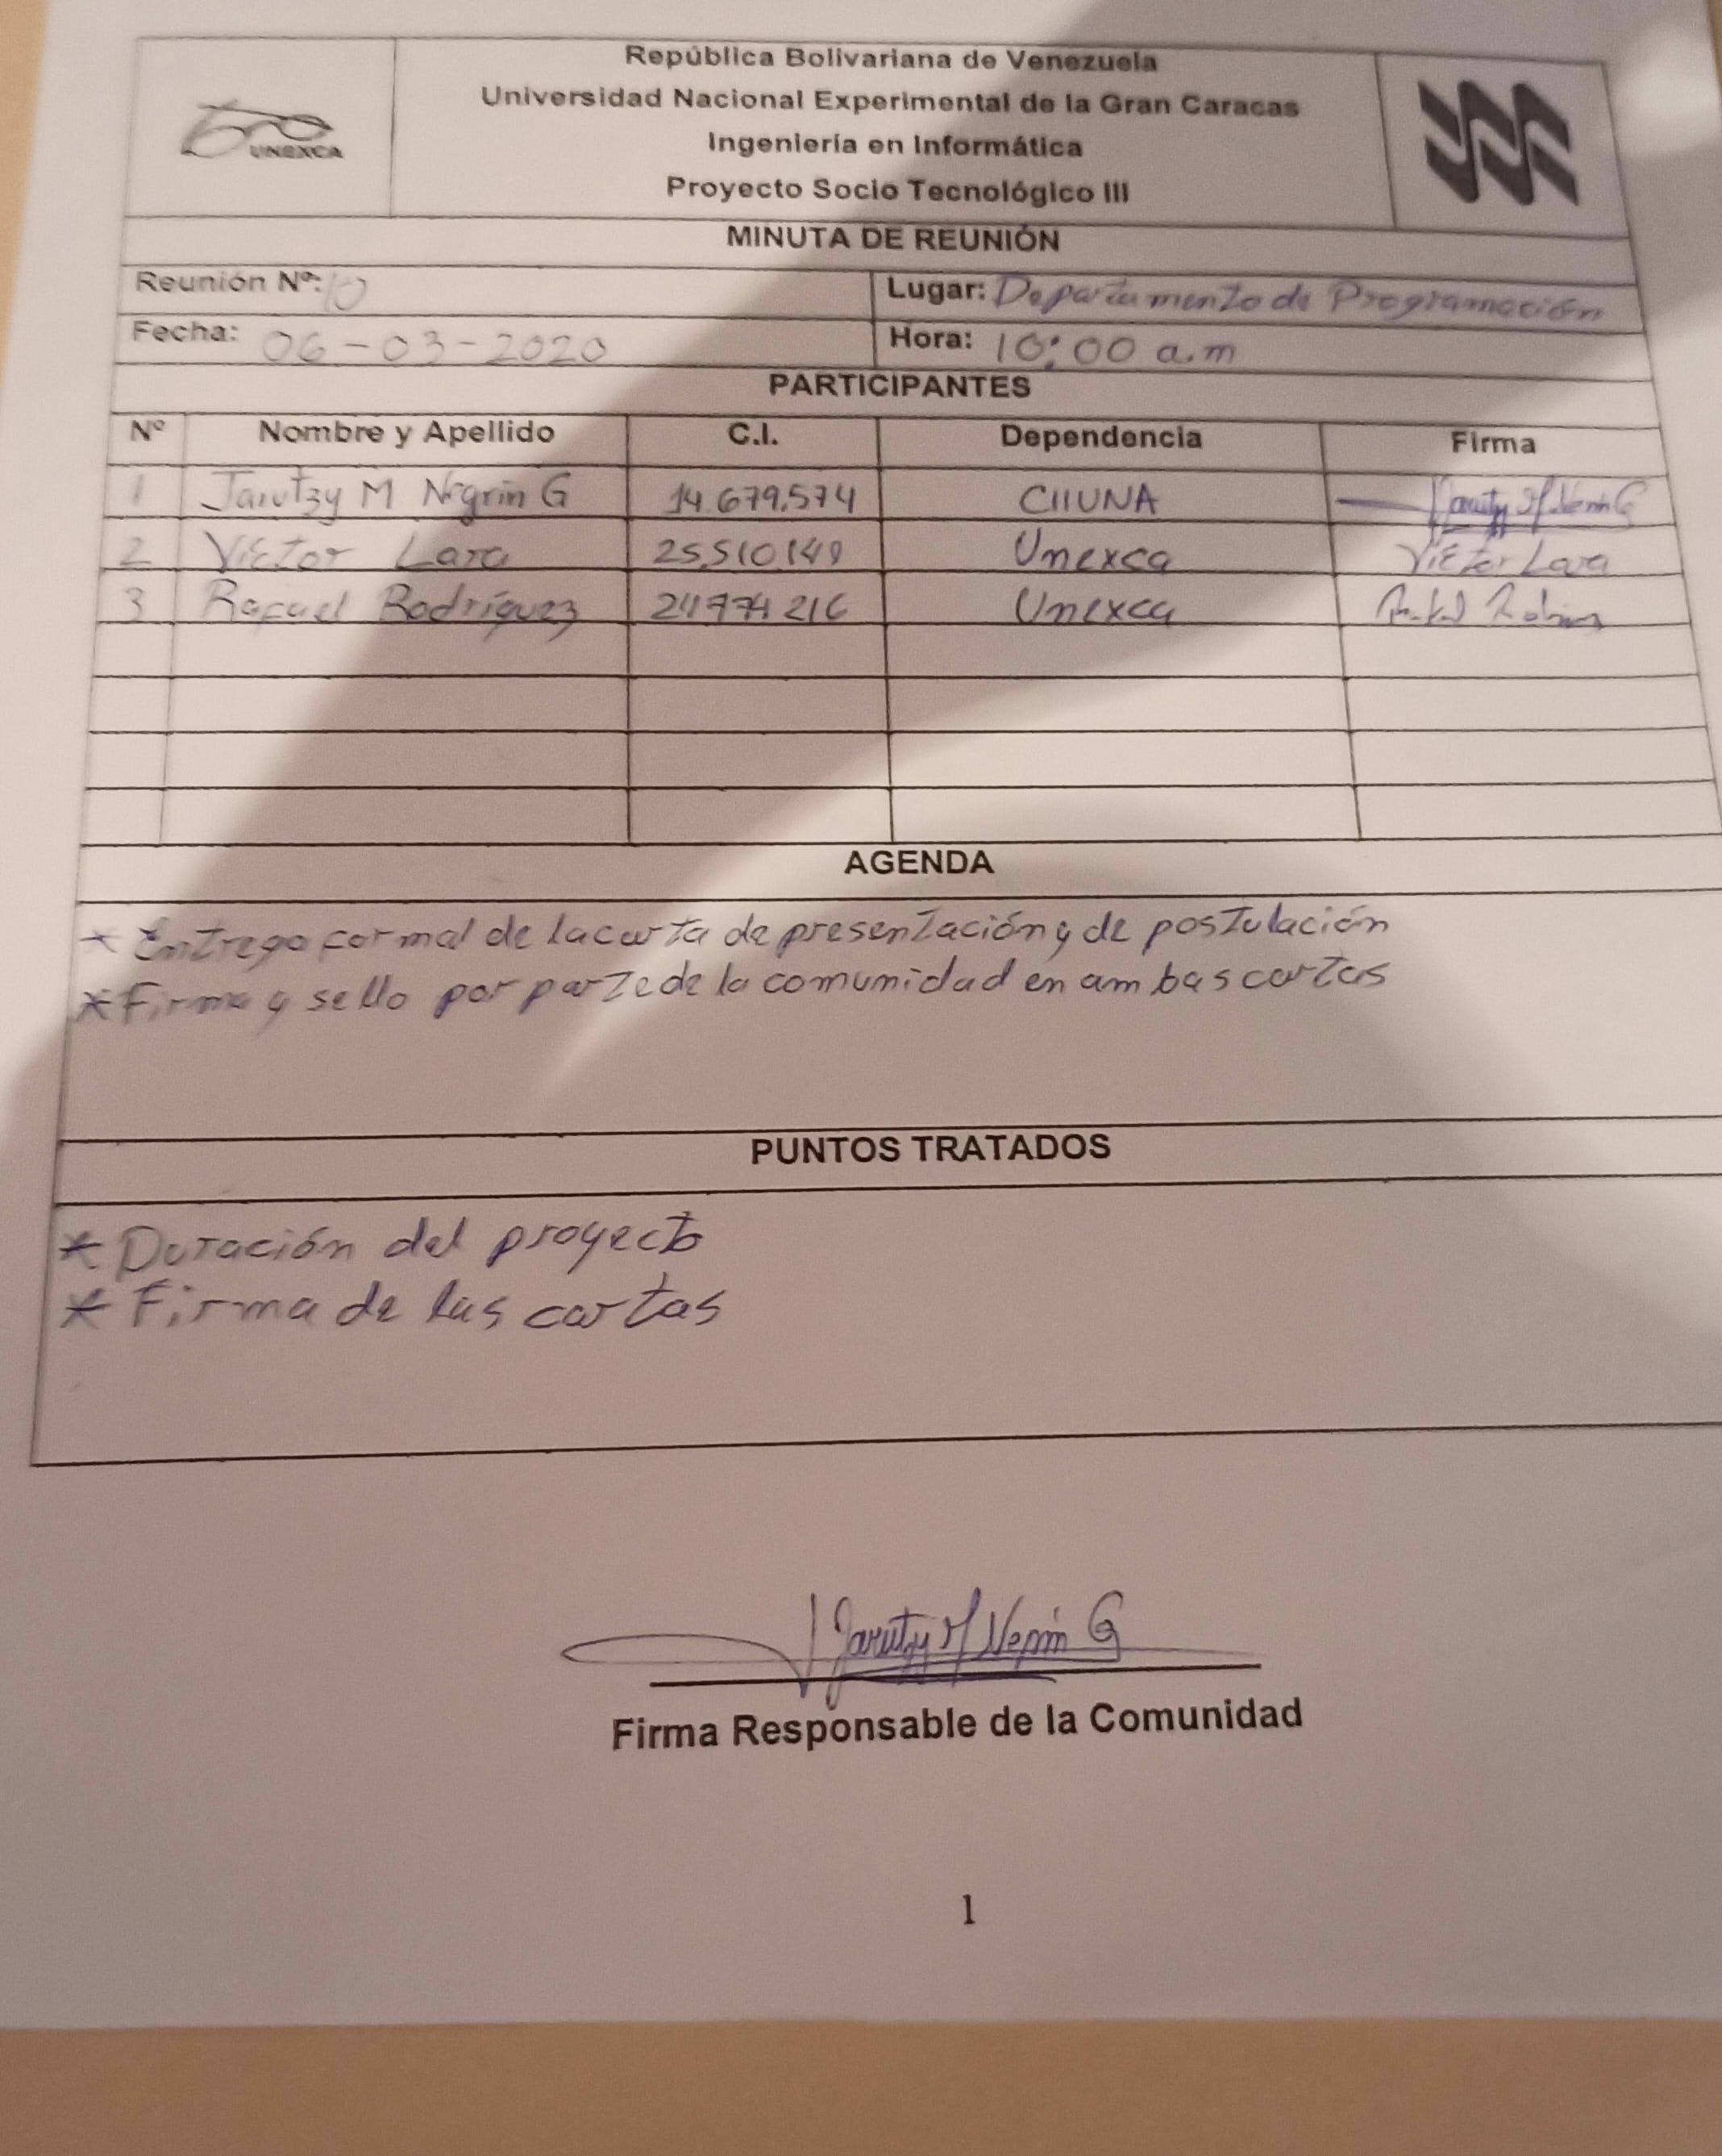 República Bolivariana de Venezuela
Universidad Nacional Experimental de la Gran Caracas
Ingeniería en Informática
Proyecto Socio Tecnológico III
UNEXCA
MINUTA DE REUNIÓN
Reunión Nº: 10 Lugar: Departamento de Programación
Fecha: 06-03-2020 Hora: 10:00 a.m
PARTICIPANTES
Nº Nombre y Apellido C.I. Dependencia Firma
1 Jarutzy M Negrin G 14.679.574 CIIUNA Jarutzy M Negrin G
2 Victor Lara 25.510.149 Unexca Victor Lara
3 Rafael Rodríguez Unexca
AGENDA
* Entrega formal de la carta de presentación y de postulación
* Firma y sello por parte de la comunidad en ambas cartas
PUNTOS TRATADOS
* Duración del proyecto
* Firma de las cartas
Jarutzy M Negrin G
Firma Responsable de la Comunidad
1